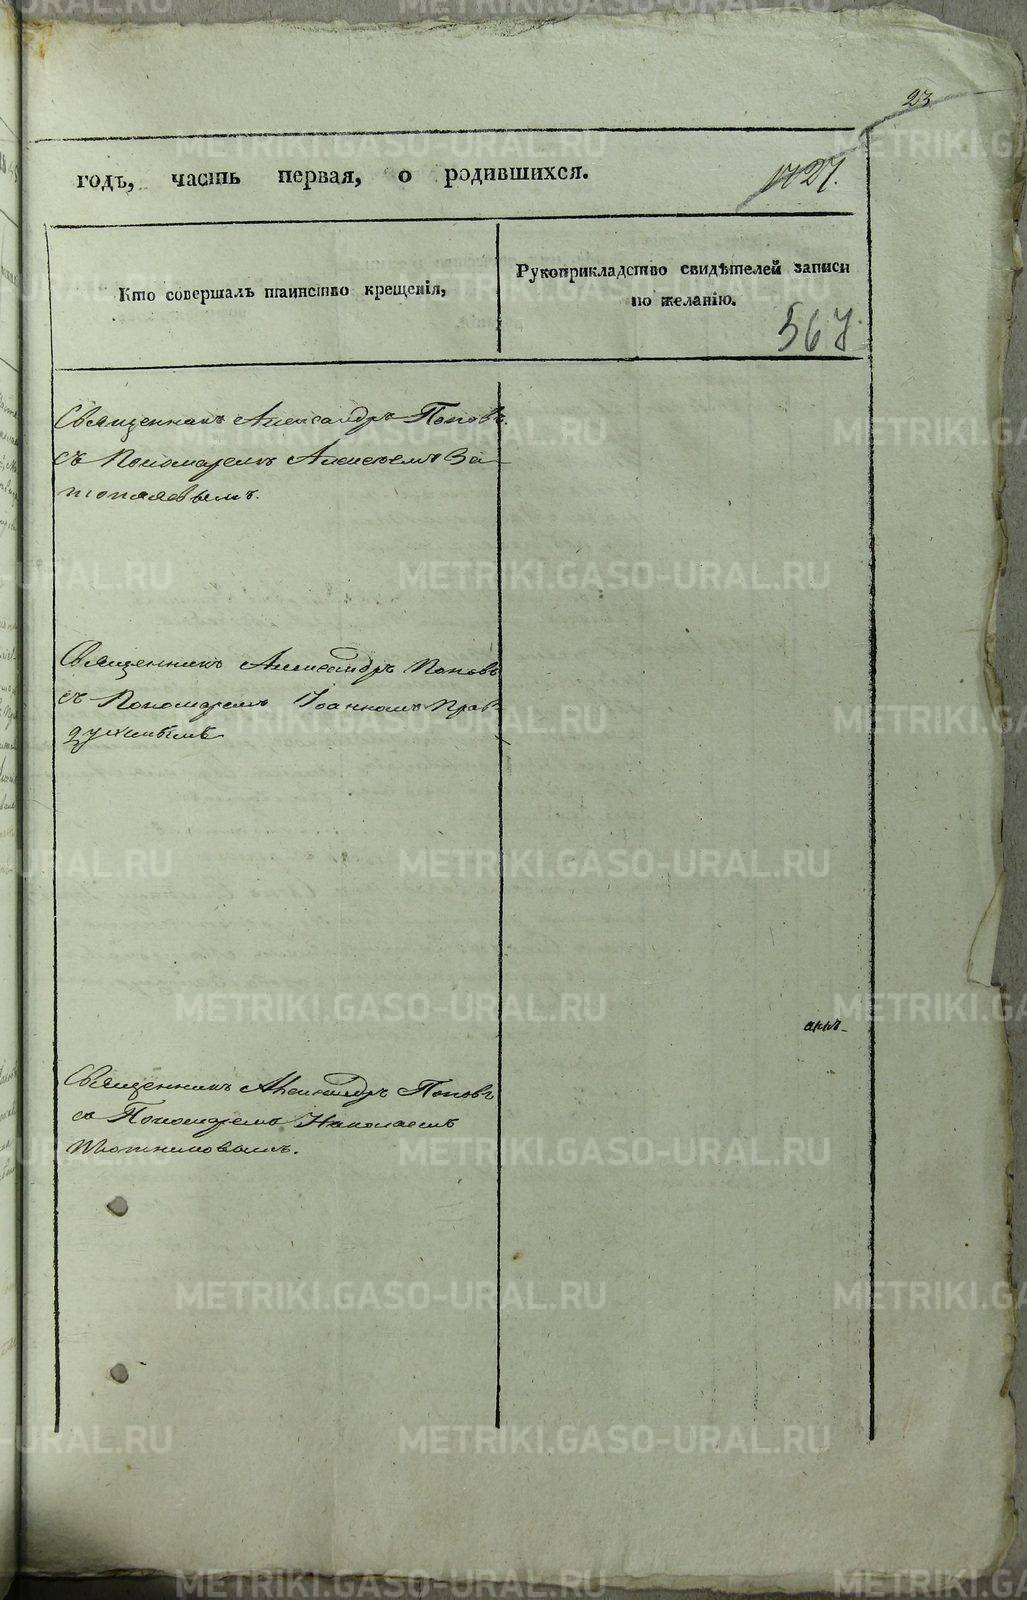 23
годъ, часть первая, о родившихся.
1727.
Кто совершалъ таинство крещенія,
Рукоприкладство свидѣтелей записи
по желанію.
567
Священникъ Александръ Поповъ
съ Пономаремъ Алексѣемъ За-
топляевымъ.
Священникъ Александръ Поповъ
съ Пономаремъ Іоанномъ Прав-
духинымъ
Священникъ Александръ Поповъ
съ Пономаремъ Николаемъ
METRIKI.GASO-URAL.RU